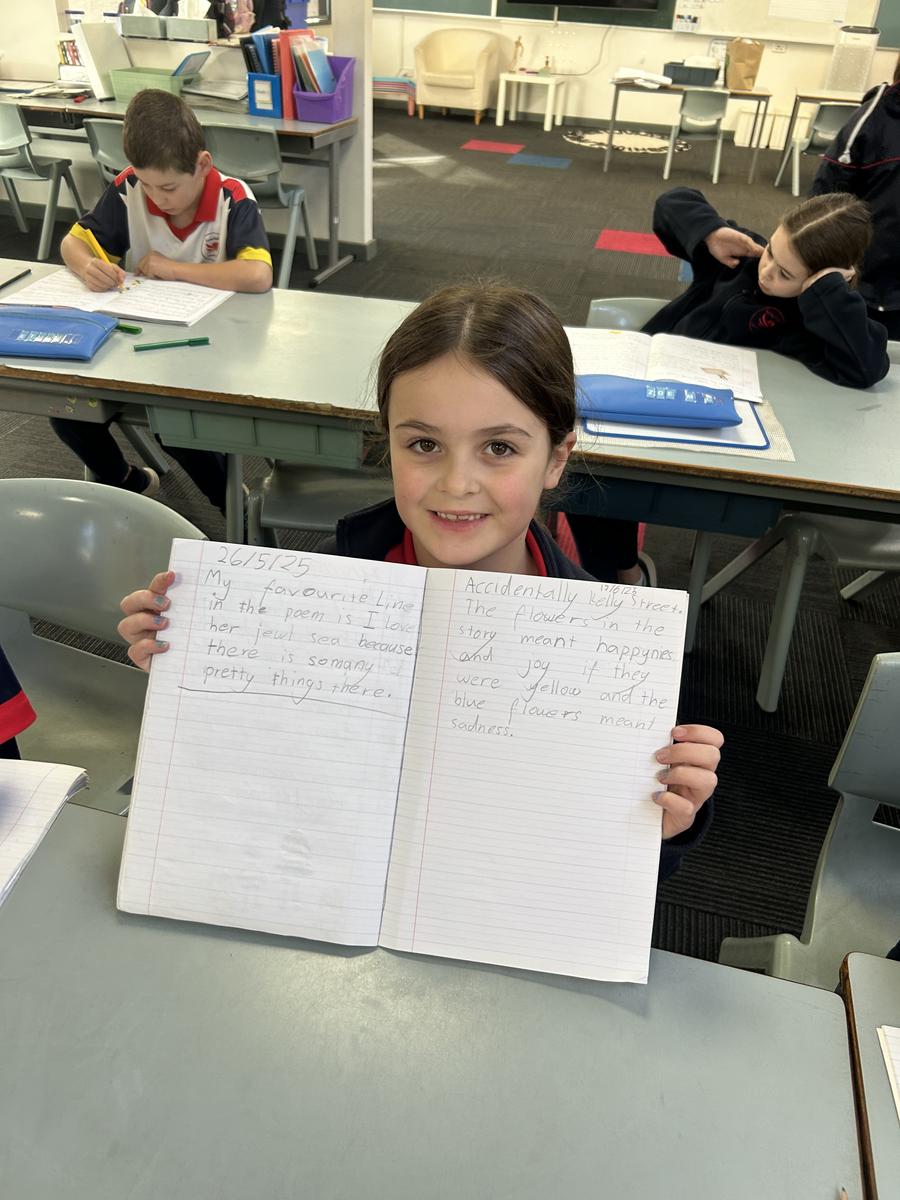 26/5/25
My favourite Line
in the poem is I Love
her jewl sea because
there is somany
pretty things there.
Accidentally Kelly Street.
The flowers in the
story meant happynes
and joy if they
were yellow and the
blue flowers meant
sadness.